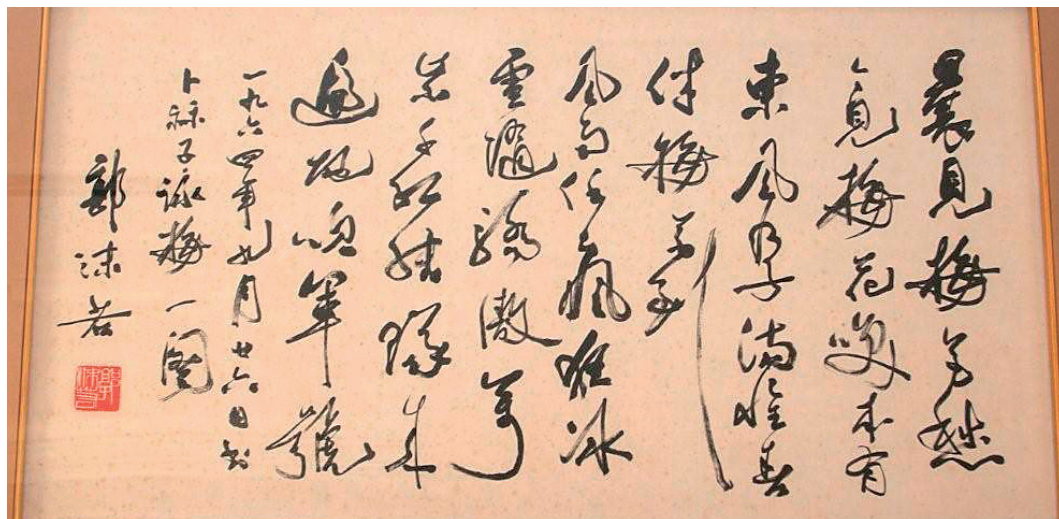 曩見梅花愁
今見梅花笑本有
東風孕滿懷春
伴梅花到
風雨任瘋狂冰
雪隨驕傲萬
紫千紅結隊來
遍地吹軍號
一九六四年九月廿六日書
卜祘子詠梅一闋
郭沫若
郭沫若